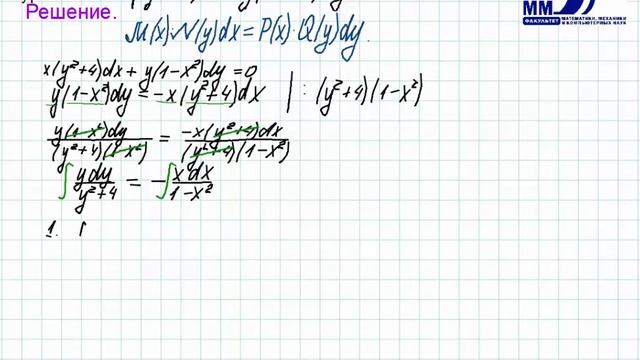 Решение.
M(x)·N(y)dx = P(x)·Q(y)dy.
ММ
ФАКУЛЬТЕТ МАТЕМАТИКИ, МЕХАНИКИ И КОМПЬЮТЕРНЫХ НАУК
x(y²+4)dx + y(1-x²)dy = 0
y(1-x²)dy = -x(y²+4)dx | : (y²+4)(1-x²)
y(1-x²)dy / (y²+4)(1-x²) = -x(y²+4)dx / (y²+4)(1-x²)
∫ ydy / y²+4 = -∫ xdx / 1-x²
1.